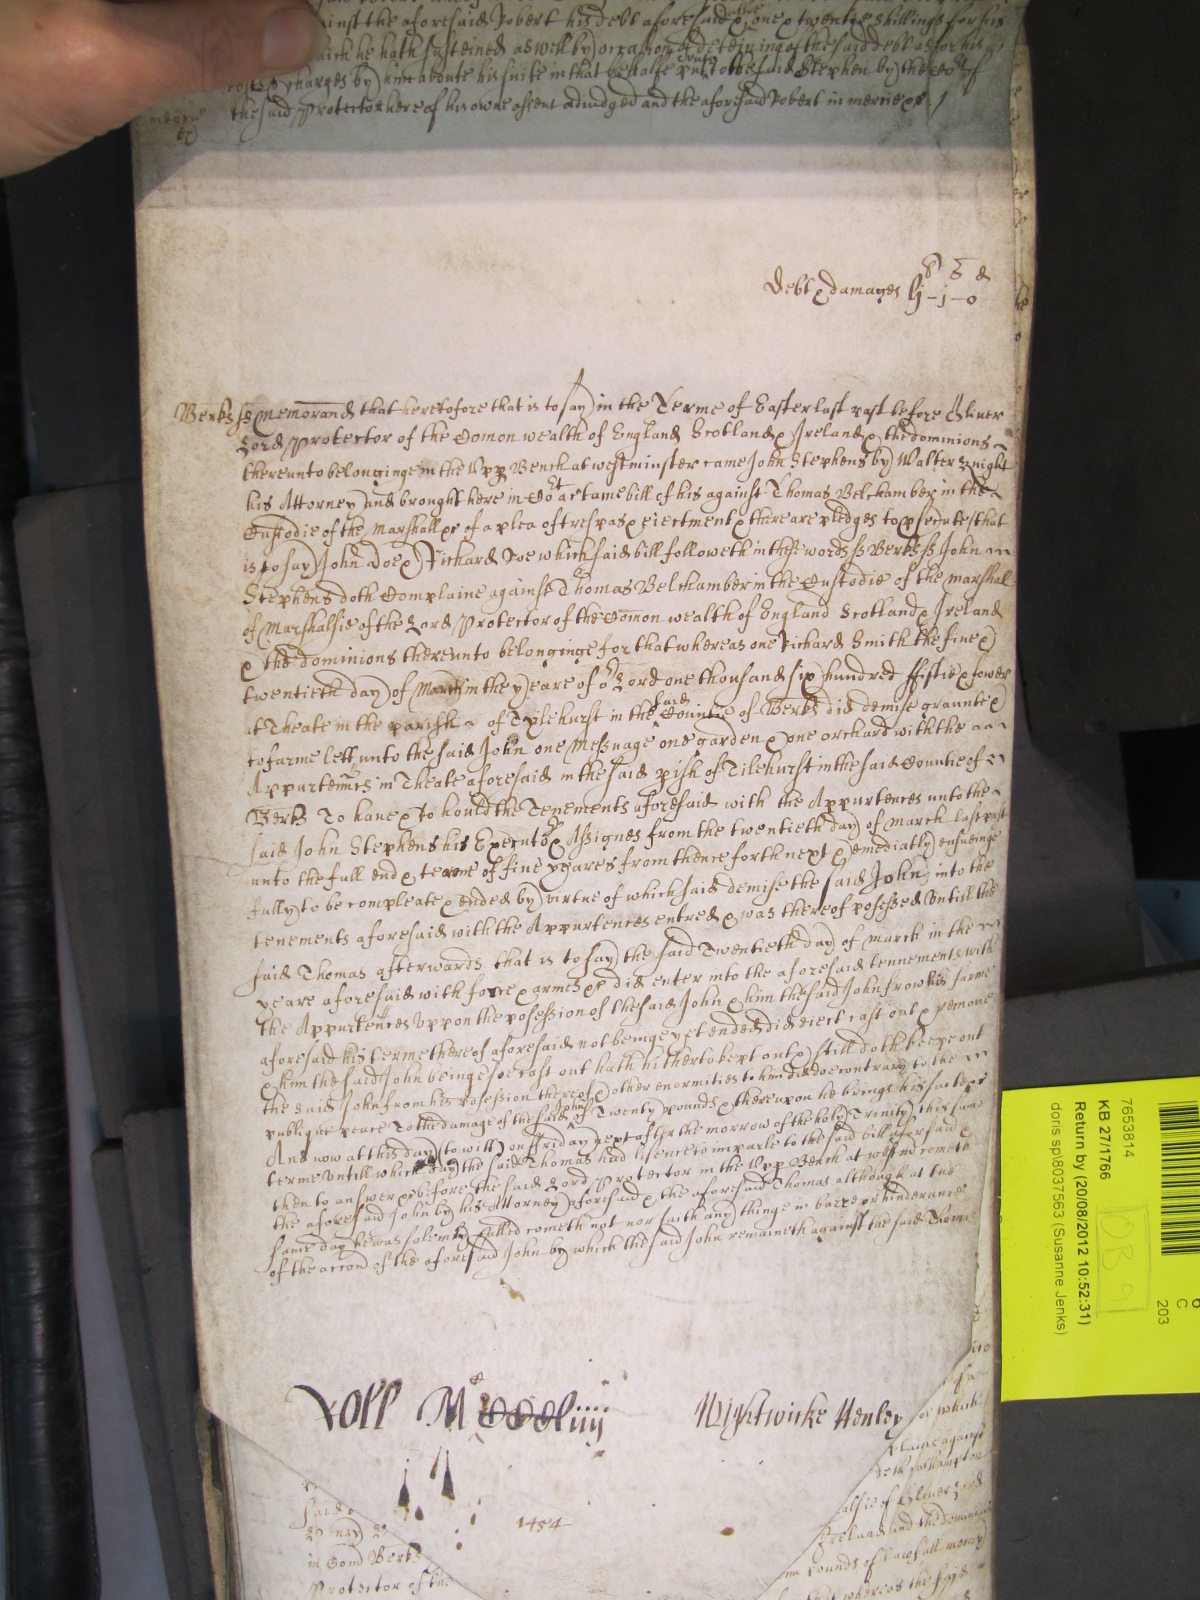 inst the aforesaid Robert his debt aforesaid & one & twentie shillings for his
which he hath susteined aswell by occasion of deteining of the said debt as for his
costes & charges by him aboute his suite in that behalfe put to the said Stephen by the Cort of
the said Protector here of his owne assent adiudged and the aforesaid Robert in mercie &c
debt & damages
li s d
-j-0
Berks ss Memorand that heretofore that is to say in the Terme of Easter last past before Oliver
Lord Protector of the Comon wealth of England Scotland & Ireland & the dominions
thereunto belonginge in the Upp Bench at westminster came John Stephens by Walter Knight
his Attorney and brought here in Cort a certaine bill of his against Thomas Belchamber in the
Custodie of the Marshall &c of a plea of trespas & eiectment & there are pledges to psecute that
is to say John Doe & Richard Roe which said bill followeth in these words ss Berks ss John
Stephens doth Complaine against Thomas Belchamber in the Custodie of the Marshall
of Marshalsie of the Lord Protector of the Comon wealth of England Scotland & Ireland
& the dominions thereunto belonginge for that whereas one Richard Smith the five &
twentieth day of March in the yeare of or Lord one thousand six hundred fiftie & fower
at Theale in the parish of Tylehurst in the said Countie of Berks did demise graunte &
to farme lett unto the said John one Messuage one garden & one orchard with the
Appurtences in Theale aforesaid in the said pish of Tilehurst in the said Countie of
Berks To have & to hould the Tenements aforesaid with the Appurtences unto the
said John Stephens his Executors & Assignes from the twentieth day of march last past
unto the full end & terme of five yeares from thence forth next & emediatly ensueinge
fully to be compleate & ended by virtue of which said demise the said John into the
tenements aforesaid with the Appurtences entred & was thereof posessed Untill the
said Thomas afterwards that is to say the said Twentieth day of march in the
yeare aforesaid with force & armes &c did enter into the aforesaid tennements with
the Appurtences Uppon the posession of the said John & him the said John from his farme
aforesaid his terme thereof aforesaid not beinge yet ended did eiect cast out & remove
& him the said John beinge soe cast out hath hitherto kept out & still doth keepe out
the said John from his posession thereof & other enormities to him did doe contrary to the
publique peace To the damage of the said John of Twenty pounds & thereupon he brings his suite &c
And now at this day (to witt) on ffriday next after the morrow of the holy Trinity this same
terme Untill which day the said Thomas had licence to imparle to the said bill aforesaid &
then to answer &c before the said Lord Protector in the Upp Bench at westm cometh
the aforesaid John by his Attorney aforesaid & the aforesaid Thomas although at the
same day he was solemly called cometh not nor saith any thinge in barre or hinderance
of the accon of the aforesaid John by which the said John remaineth against the said Thomas
Roll
Nightwicke Henley
1454
said
in Comd Berks
Protector of the
or which
plaine against
alsie of Oliver Lord
Ireland and the dominions
pounds of lawfull money
that whereas the said
7653814
KB 27/1766
Return by (20/08/2012 10:52:31)
doris sp\8037563 (Susanne Jenks)
DB 9
6
C
203